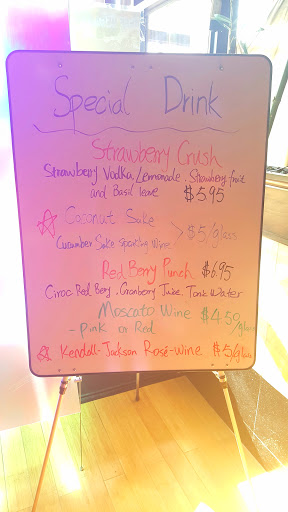 Special Drink
Strawberry Crush
Strawberry Vodka, Lemonade, Strawberry fruit
and Basil leave $5.95
☆ Coconut Sake
Cucumber Sake Sparkling Wine > $5/glass
Red Berry Punch $6.95
Ciroc Red Berry, Cranberry Juice, Tonic Water
Moscato Wine $4.50/glass
- Pink or Red
☆ Kendall-Jackson Rosé-wine $5/glass